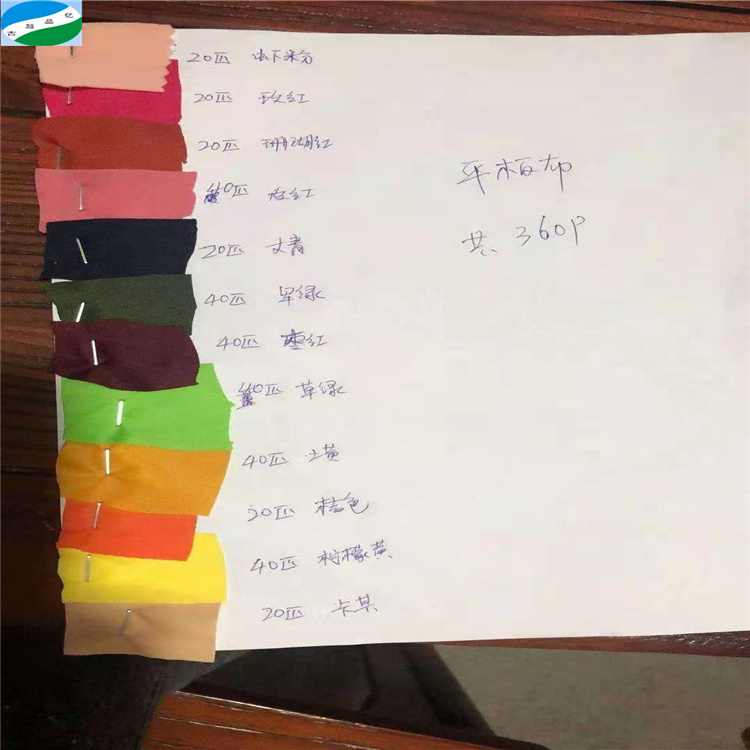 古越品亿
20匹 虾米分
20匹 玫红
20匹 珊瑚红
40匹 桃红
20匹 丈青
40匹 军绿
40匹 枣红
40匹 草绿
40匹 土黄
20匹 桔色
40匹 柠檬黄
20匹 卡其
平板布
共 360P